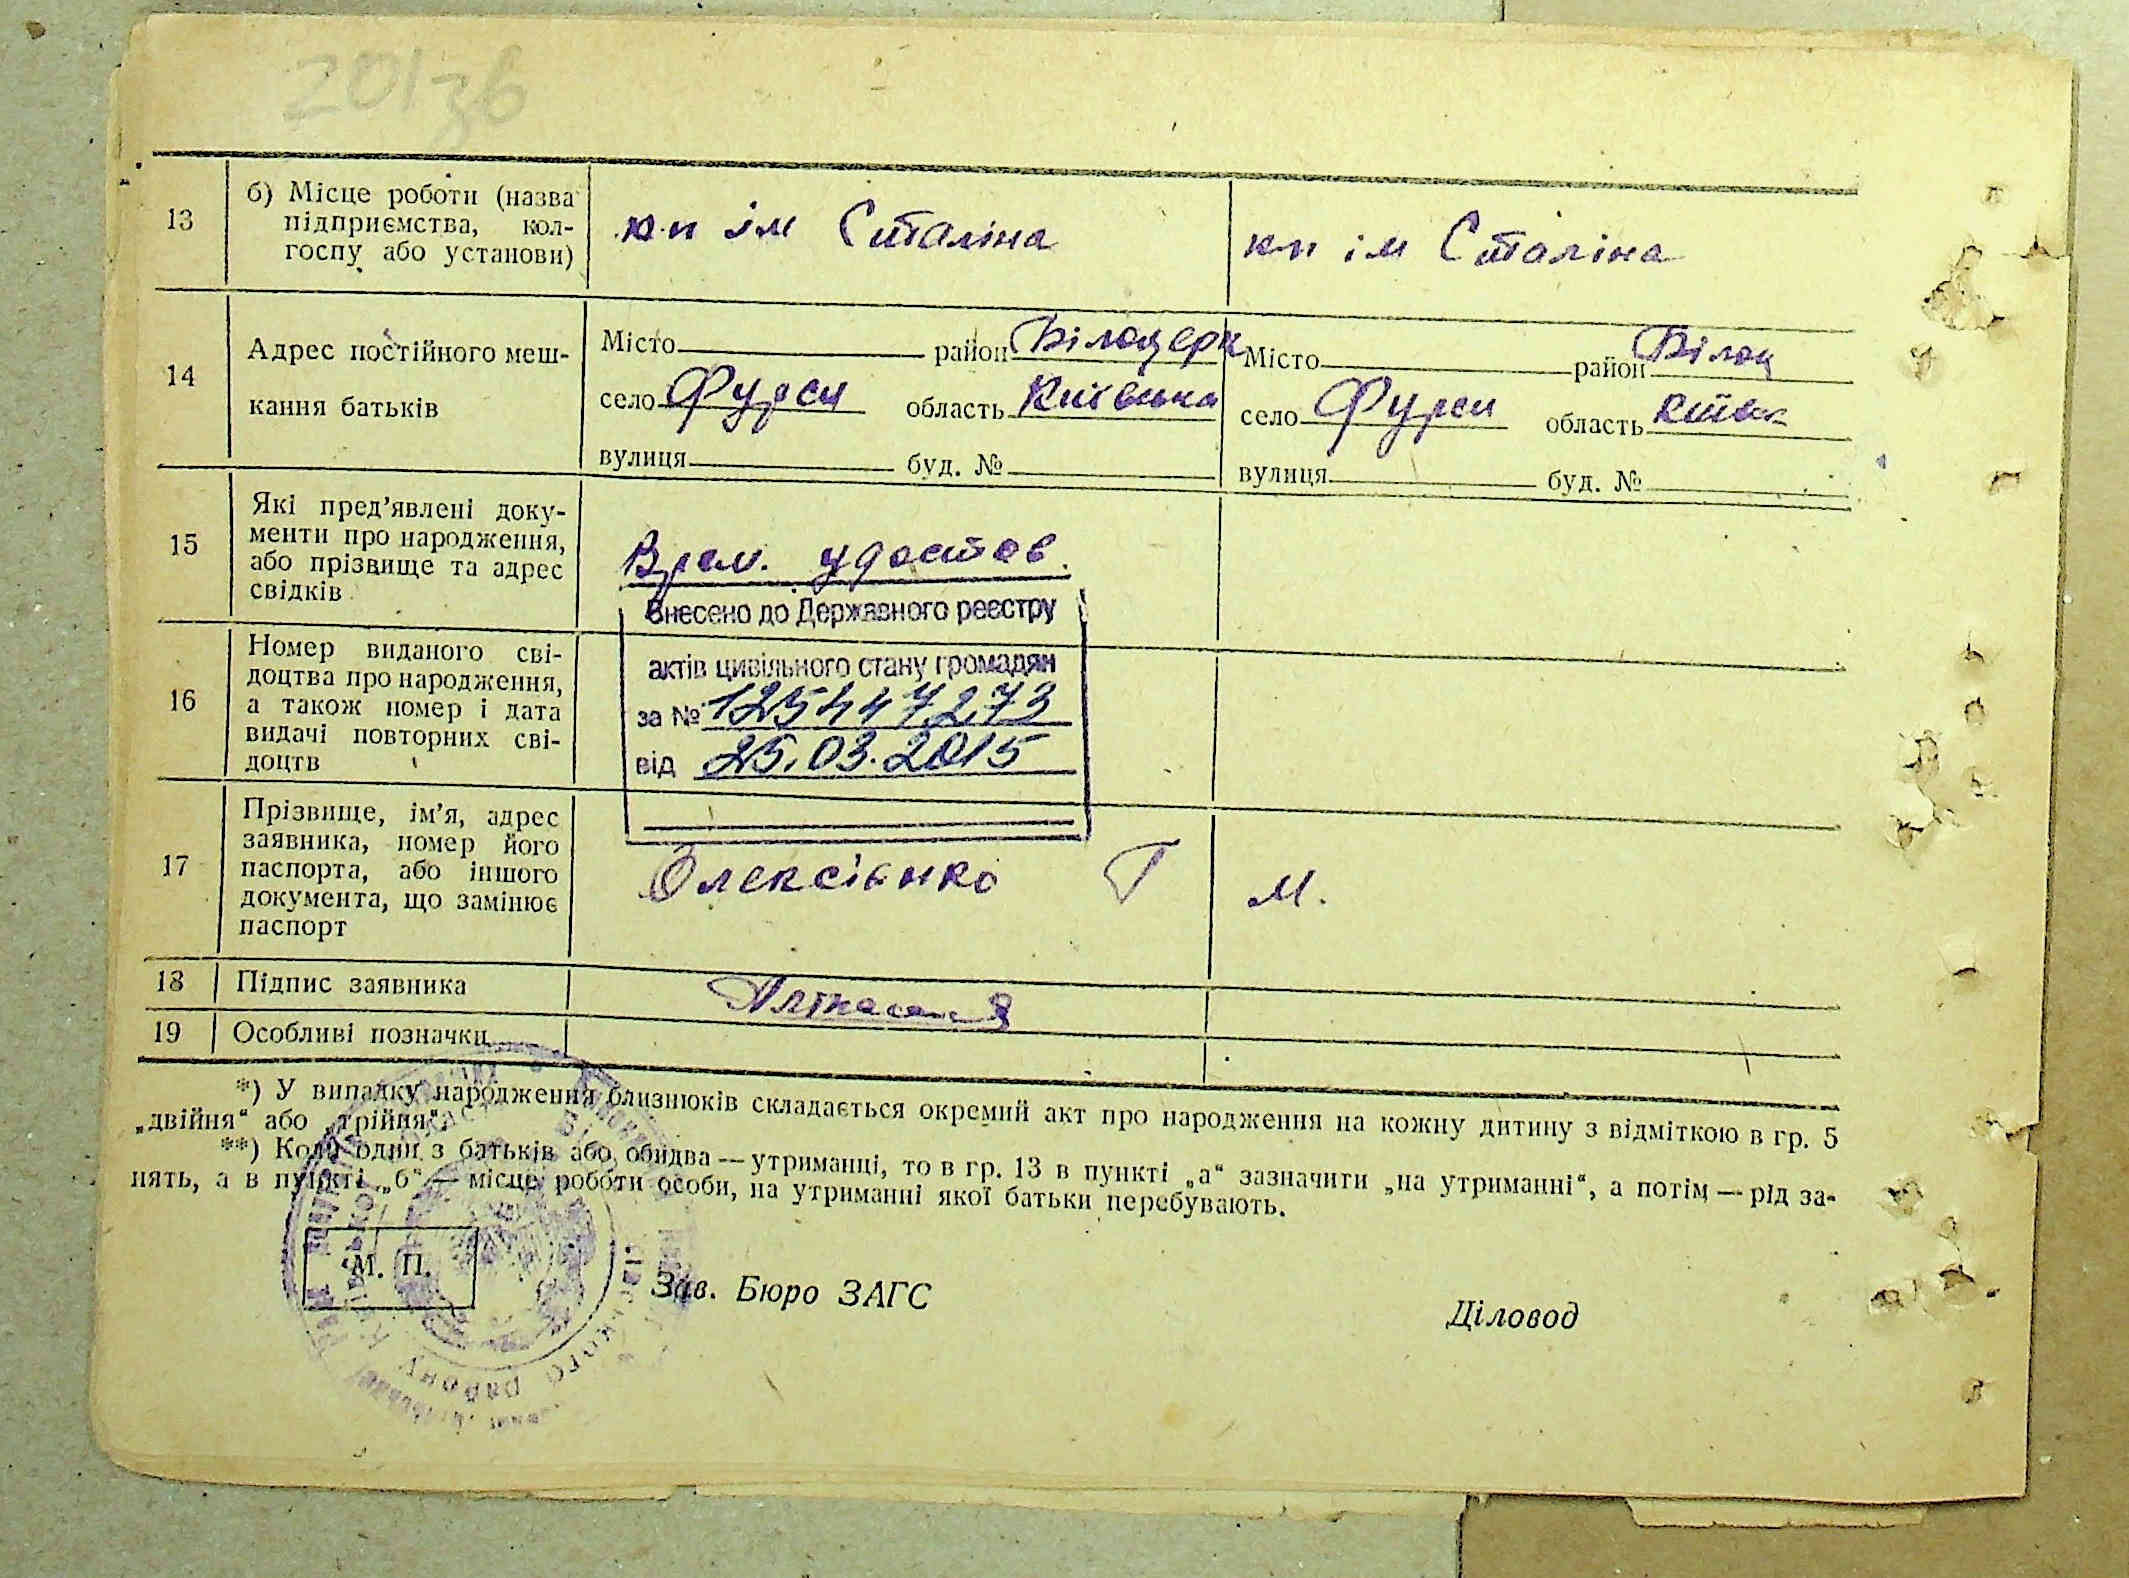 13
б) Місце роботи (назва
підприємства, кол-
госпу або установи)
кп ім Сталіна
кп ім Сталіна
14
Адрес постійного меш-
кання батьків
Місто район Білоцерк
село Фурси область Київська
вулиця буд. №
Місто район Білоц
село Фурси область Київськ
вулиця буд. №
15
Які пред’явлені доку-
менти про народження,
або прізвище та адрес
свідків
Врем. удостов.
Внесено до Державного реєстру
актів цивільного стану громадян
за №125447273
від 25.03.2015
16
Номер виданого сві-
доцтва про народження,
а також номер і дата
видачі повторних сві-
доцтв
17
Прізвище, ім’я, адрес
заявника, номер його
паспорта, або іншого
документа, що замінює
паспорт
Олексієнко Г М.
18 Підпис заявника
19 Особливі позначки
*) У випадку народження близнюків складається окремий акт про народження на кожну дитину з відміткою в гр. 5
„двійня“ або „трійня“.
**) Коли один з батьків або обидва — утриманці, то в гр. 13 в пункті „а“ зазначити „на утриманні“, а потім — рід за-
нять, а в пункті „б“ — місце роботи особи, на утриманні якої батьки перебувають.
М. П.
Зав. Бюро ЗАГС
Діловод